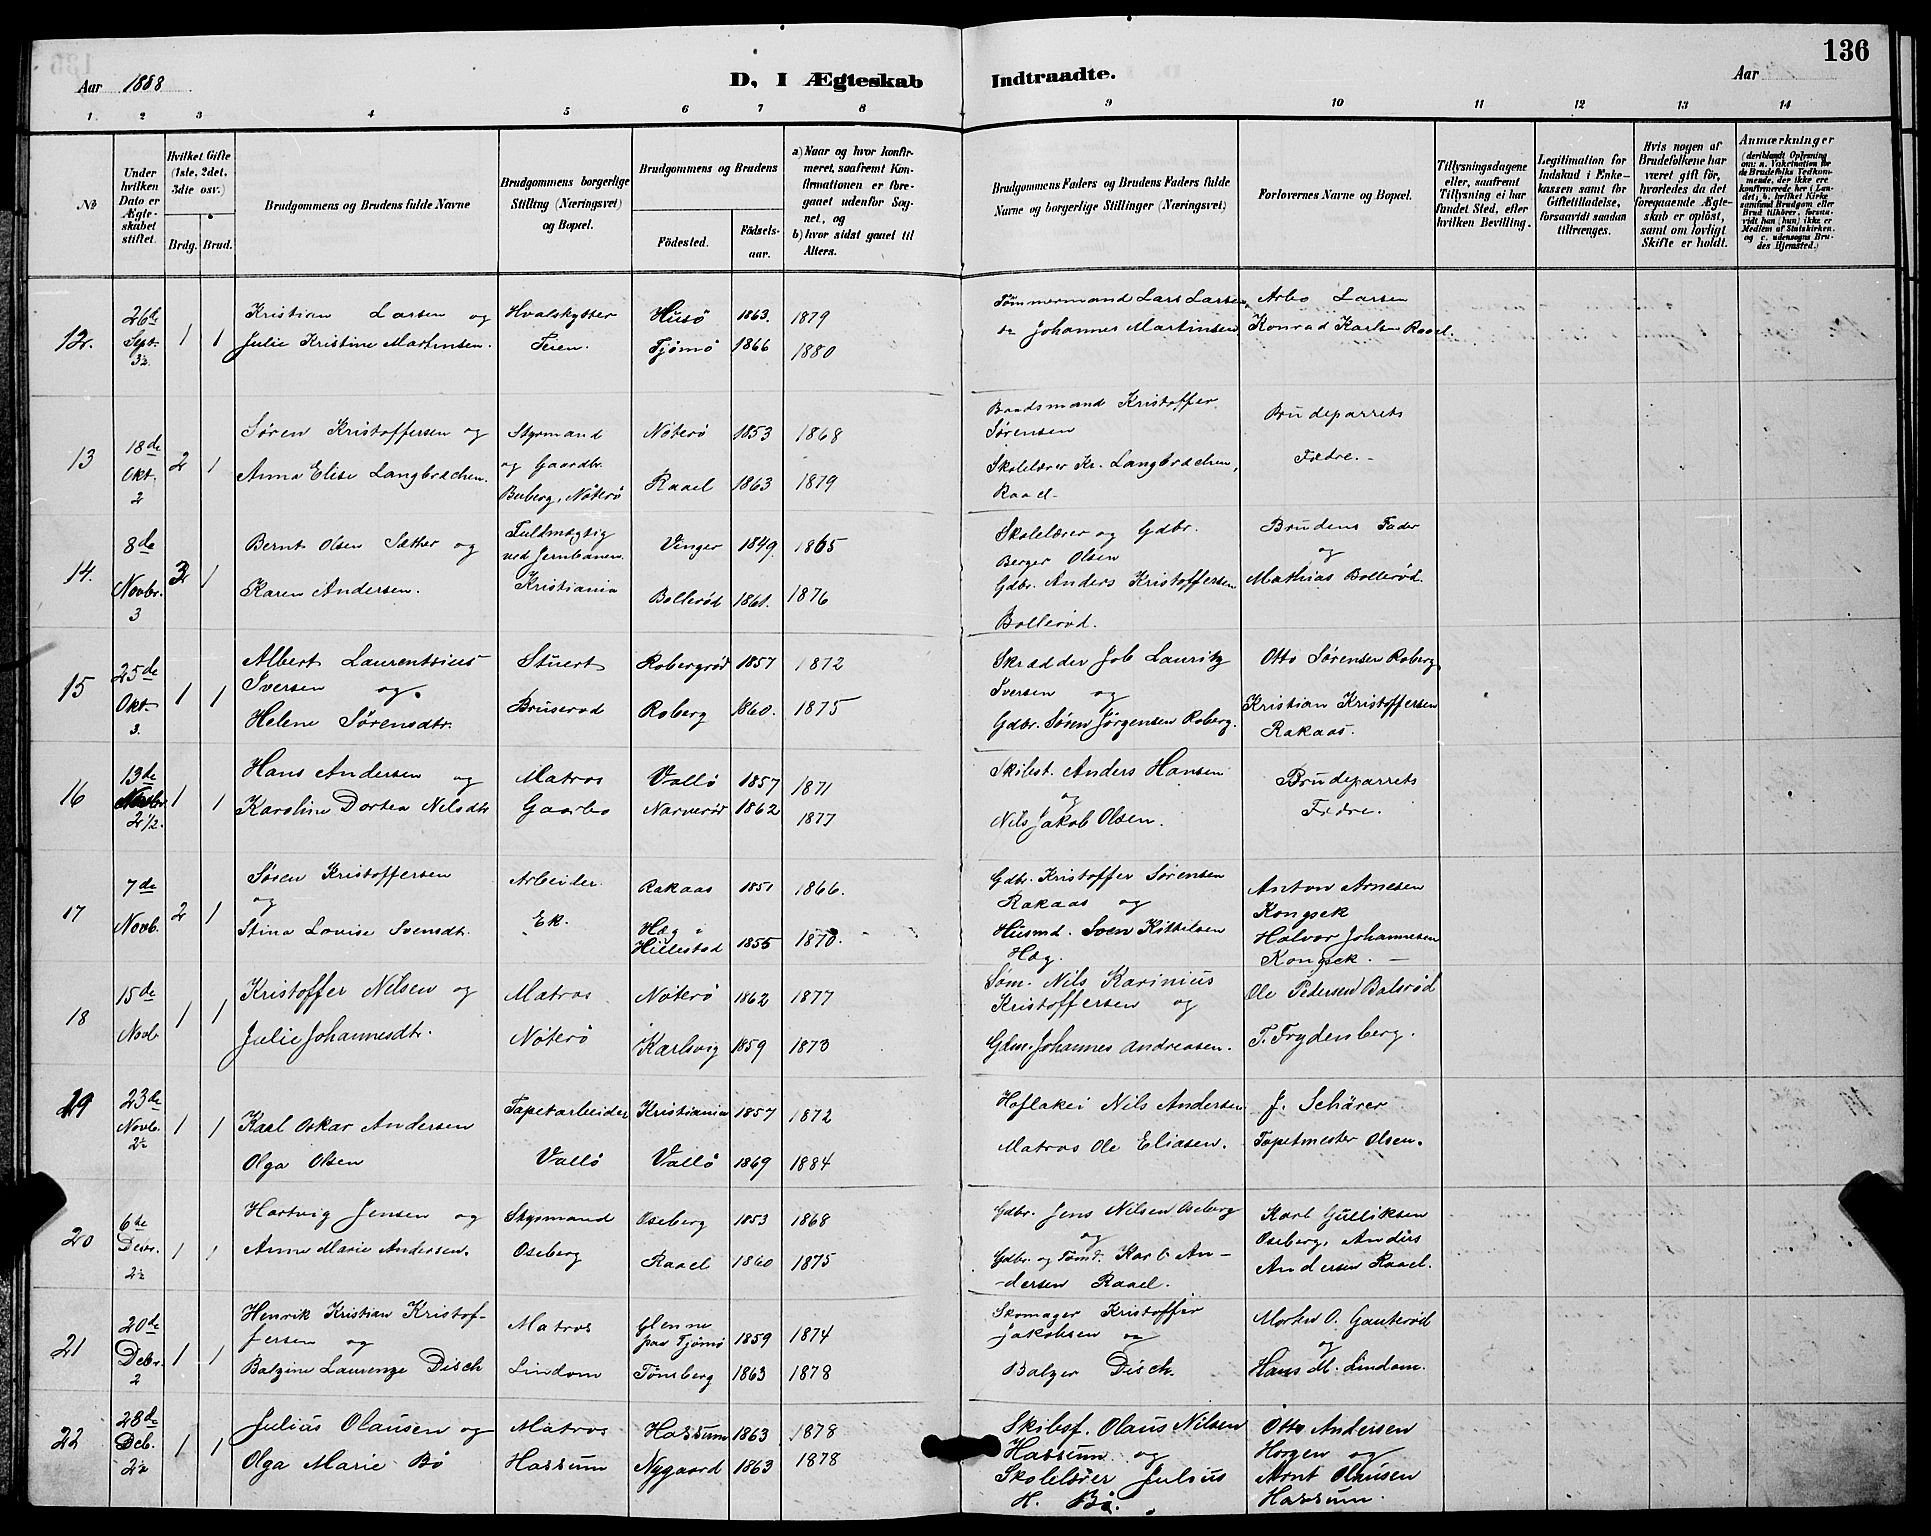 136
Aar 1888
D, I Ægteskab Indtraadte.
Aar
1 2 3 4 5 6 7 8 9 10 11 12 13 14
No
Under hvilken Dato er Ægteskabet stiftet.
Hvilket Gifte (1ste, 2det, 3die osv.)
Brdg. Brud.
Brudgommens og Brudens fulde Navne
Brudgommens borgerlige Stilling (Næringsvei) og Bopæl.
Brudgommens og Brudens
Fødested. Fødselsaar.
a) Naar og hvor konfirmeret, saafremt Konfirmationen er foregaaet udenfor Sognet, og
b) hvor sidst gaaet til Alters.
Brudgommens Faders og Brudens Faders fulde Navne og borgerlige Stillinger (Næringsvei)
Forlovernes Navne og Bopæl.
Tillysningsdagene eller, saafremt Tillysning ei har fundet Sted, efter hvilken Bevilling.
Legitimation for Indskud i Enkekassen samt for Giftetilladelse, forsaavidt saadan tiltrænges.
Hvis nogen af Brudefolkene har været gift før, hvorledes da det foregaaende Ægteskab er opløst, samt om lovligt Skifte er holdt.
Anmærkninger
(deriblandt Oplysning om: a. Vakcination for de Brudefolks Vedkommende, der ikke ere konfirmerede her i Landet; b. hvilket Kirkesamfund Brudgom eller Brud tilhører, forsavidt han (hun) ikke er Medlem af Statskirken, og c. udensogns Brudes Hjemsted.)
12. 26de Sept. 3½ 1 1
Kristian Larsen og Hvalskytter Husö 1863. 1879
Julie Kristine Martinsen. Teien. Tjømø 1866 1880
Tømmermand Lars Larsen, Arbo Larsen
Johannes Martinsen Konrad Karlsen Raael.
13 18de Okt. 2 2 1
Søren Kristoffersen og Styrmand Nøterø 1853 1868
og Gaardbr.
Anna Elise Langbrachen. Buberg, Nøterø Raael 1863 1879
Baadsmand Kristoffer Sørensen
Skolelærer Kr. Langbrachen, Raael-
Brudeparrets
Fædre. -
14. 8de Novbr. 3 3 1
Bernt Olsen Sæther og Fuldmægtig ved Jernbanen. Vinger 1849. 1865
Karen Andersen. Kristiania Bollerød 1861. 1876
Skolelærer og Gdbr. Berger Olsen
Gdbr. Anders Kristoffersen Bollerød.
Brudens Fader
og
Mathias Bollerød.
15 25de Okt. 3. 1 1
Albert Laurentsius Stuert Robergrød 1857 1872
Iversen og
Helene Sørensdtr. Bruserød Roberg 1860. 1875
Skrædder Job Lauritz Iversen og
Gdbr. Søren Jørgensen Roberg.
Otto Sørensen Roberg,
Kristian Kristoffersen
Rakaas.
16 13de Novbr 2½. 1 1
Hans Andersen og Matros Vallø 1857 1871
Karoline Dortea Nilsdtr Gaarbo Narverød 1862 1877
Skibst. Anders Hansen
og
Nils Jakob Olsen.
Brudeparrets
Fædre.
17 7de Novb. 2 1
Søren Kristoffersen Arbeider. Rakaas 1851 1866.
og
Stina Lovise Svensdtr. Ek. Hæg i Hillestad 1855 1870.
Gdbr. Kristoffer Sørensen
Rakaas og
Husmd. Sven Kittilsen
Hæg.
Anton Arnesen
Kongsek
Halvor Johannesen
Kongsek. -
18 15de Novb 1 1
Kristoffer Nilsen og Matros Nøterø 1862 1877
Julie Johannesdtr. Nøterø Karlsvig 1859 1873
Søm. Nils Karinius
Kristoffersen og
Johannes Andreasen.
Ole Pedersen Balsrød
T. Frydenberg.
19 23de Novb. 2½ 1 1
Karl Oskar Andersen Tapetarbeider Kristiania 1857 1872
Olga Olsen Vallø Vallø 1869 1884
Hoflakei Nils Andersen J. Schärer
Matros Ole Eliasen. Tapetmester Olsen.
20 6te Debr. 2½ 1 1
Hartvig Jensen og Styrmand Oseberg 1853 1868
Anne Marie Andersen. Oseberg Raael 1860 1875
Gdbr. Jens Nilsen Oseberg
og
Gdbr. og Tømd. Karl An-
dersen Raael.
Karl Gulliksen
Oseberg, Anders
Andersen Raael.
21 20de Debr. 2 1 1
Henrik Kristian Kristof- Matros Glenne paa Tjømø 1859 1874
fersen og
Balzine Laurenze Disch Lindom Tønsberg 1863 1878
Skomager Kristoffer
Jakobsen og
Balzer Disch.
Morten O. Gauterød
og
Hans M. Lindom.
22 28de Deb. 2½ 1 1
Julius Olausen og Matros Hassum 1863 1878
Olga Marie Bø Hassum Nygaard 1863 1878
Skibsf. Olaus Nilsen
Hassum og
Skolelærer Julius
H. Bø.
Otto Andersen
Horgen og
Arnt Olausen
Hassum.